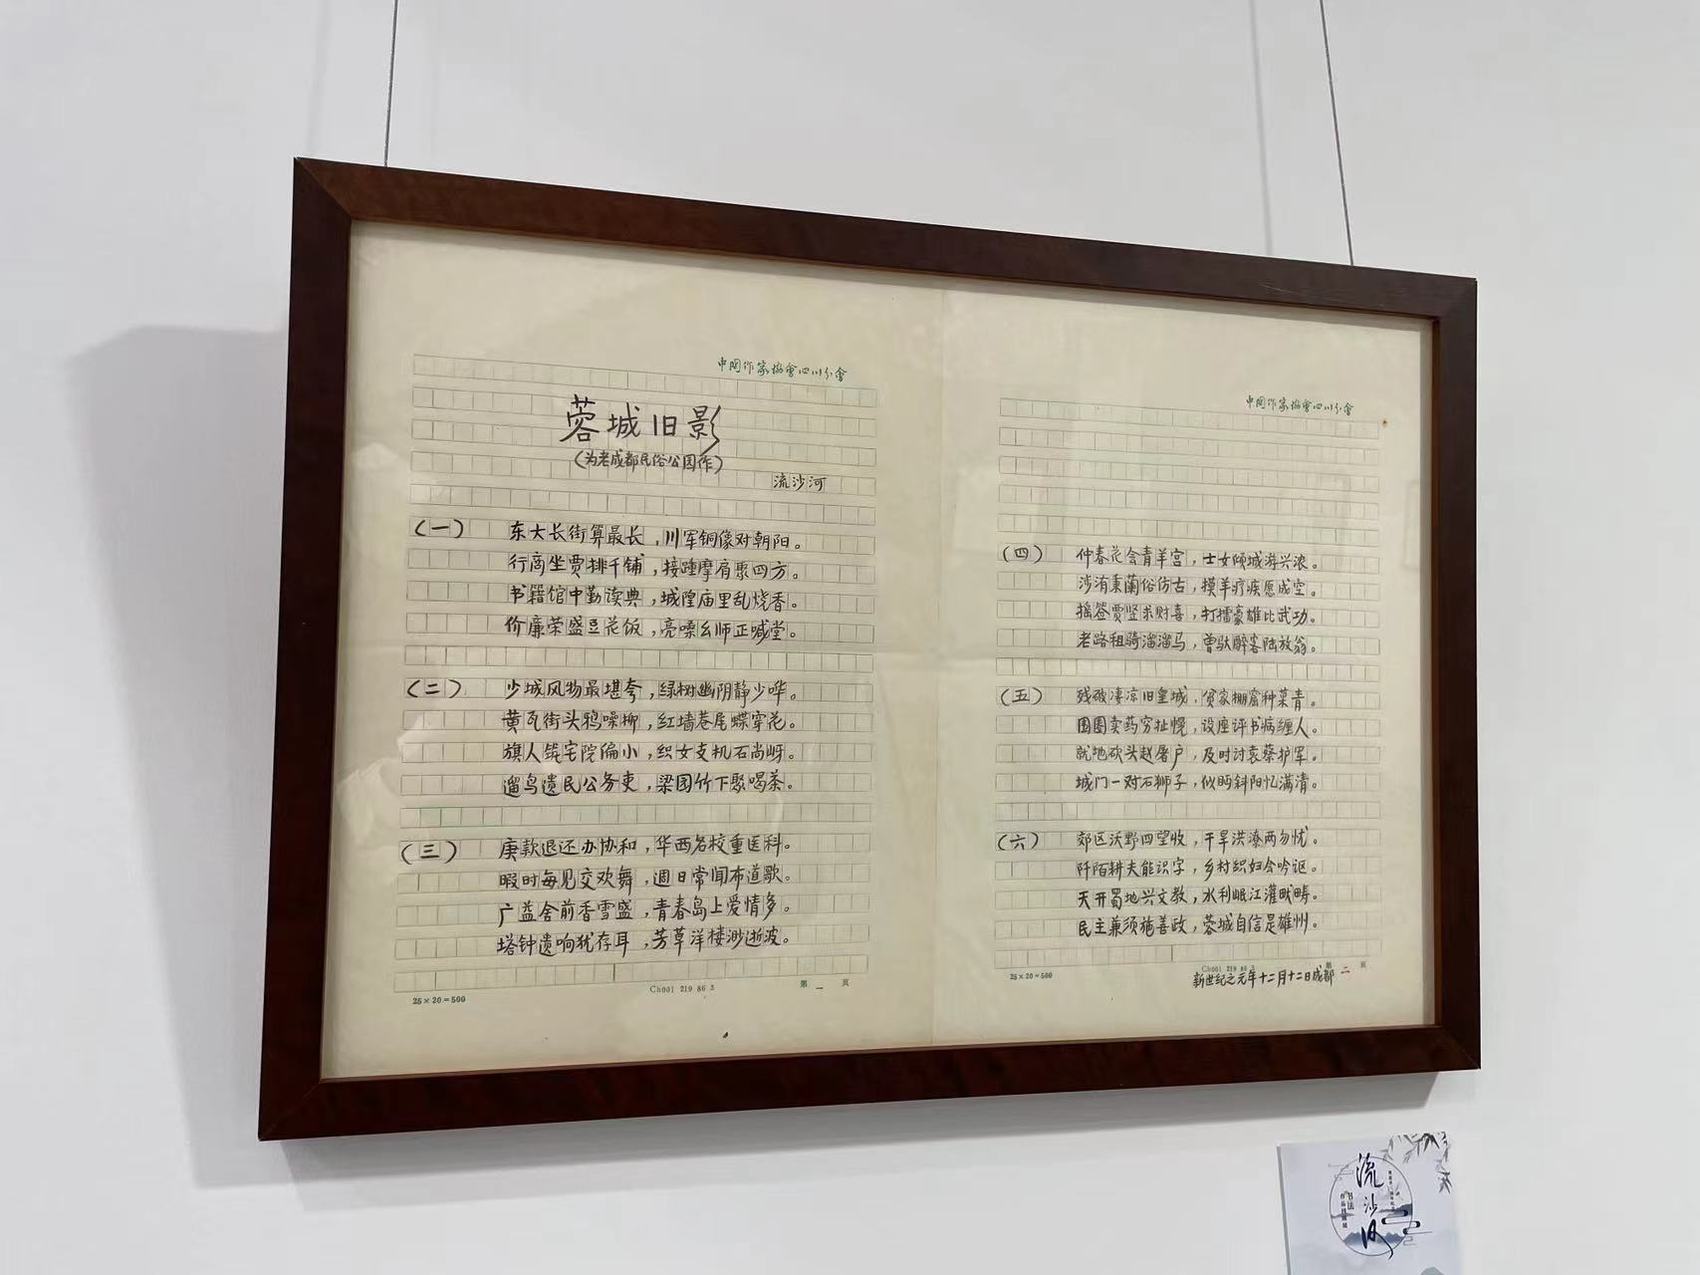 中国作家协会四川分会
蓉城旧影
(为老成都民俗公园作)
流沙河
(一) 东大长街算最长，川军铜像对朝阳。
行商坐贾排千铺，接踵摩肩聚四方。
书籍馆中勤读典，城隍庙里乱烧香。
价廉荣盛豆花饭，亮嗓幺师正喊堂。
(二) 少城风物最堪夸，绿树幽阴静少哗。
黄瓦街头鸦噪柳，红墙巷尾蝶穿花。
旗人铳宅院偏小，织女支机石尚岈。
遛鸟遗民公务吏，梁园竹下聚喝茶。
(三) 庚款退还办协和，华西名校重医科。
暇时每见交欢舞，週日常闻布道歌。
广益舍前香雪盛，青春岛上爱情多。
塔钟遗响犹存耳，芳草洋楼渺逝波。
25×20=500
Ch001 219 86 3
第 一 页
中国作家协会四川分会
(四) 仲春花会青羊宫，士女倾城游兴浓。
涉洧秉蘭俗仿古，摸羊疗疾愿成空。
摇签贾竖求财喜，打擂豪雄比武功。
老路租骑溜溜马，曾驮醉客陆放翁。
(五) 残破凄凉旧皇城，贫家棚窟种菜青。
围圈卖药穷扯幌，设座评书病缠人。
就地砍头赵屠户，及时讨袁蔡护军。
城门一对石狮子，似眄斜阳忆满清。
(六) 郊区沃野四望收，干旱洪潦两勿忧。
阡陌耕夫能识字，乡村织妇会吟讴。
天开蜀地兴文教，水利岷江灌畎畴。
民主兼须施善政，蓉城自信是雄州。
25×20=500
Ch001 219 86 3
第 二 页
新世纪之元年十二月十二日成都
流沙河
书法